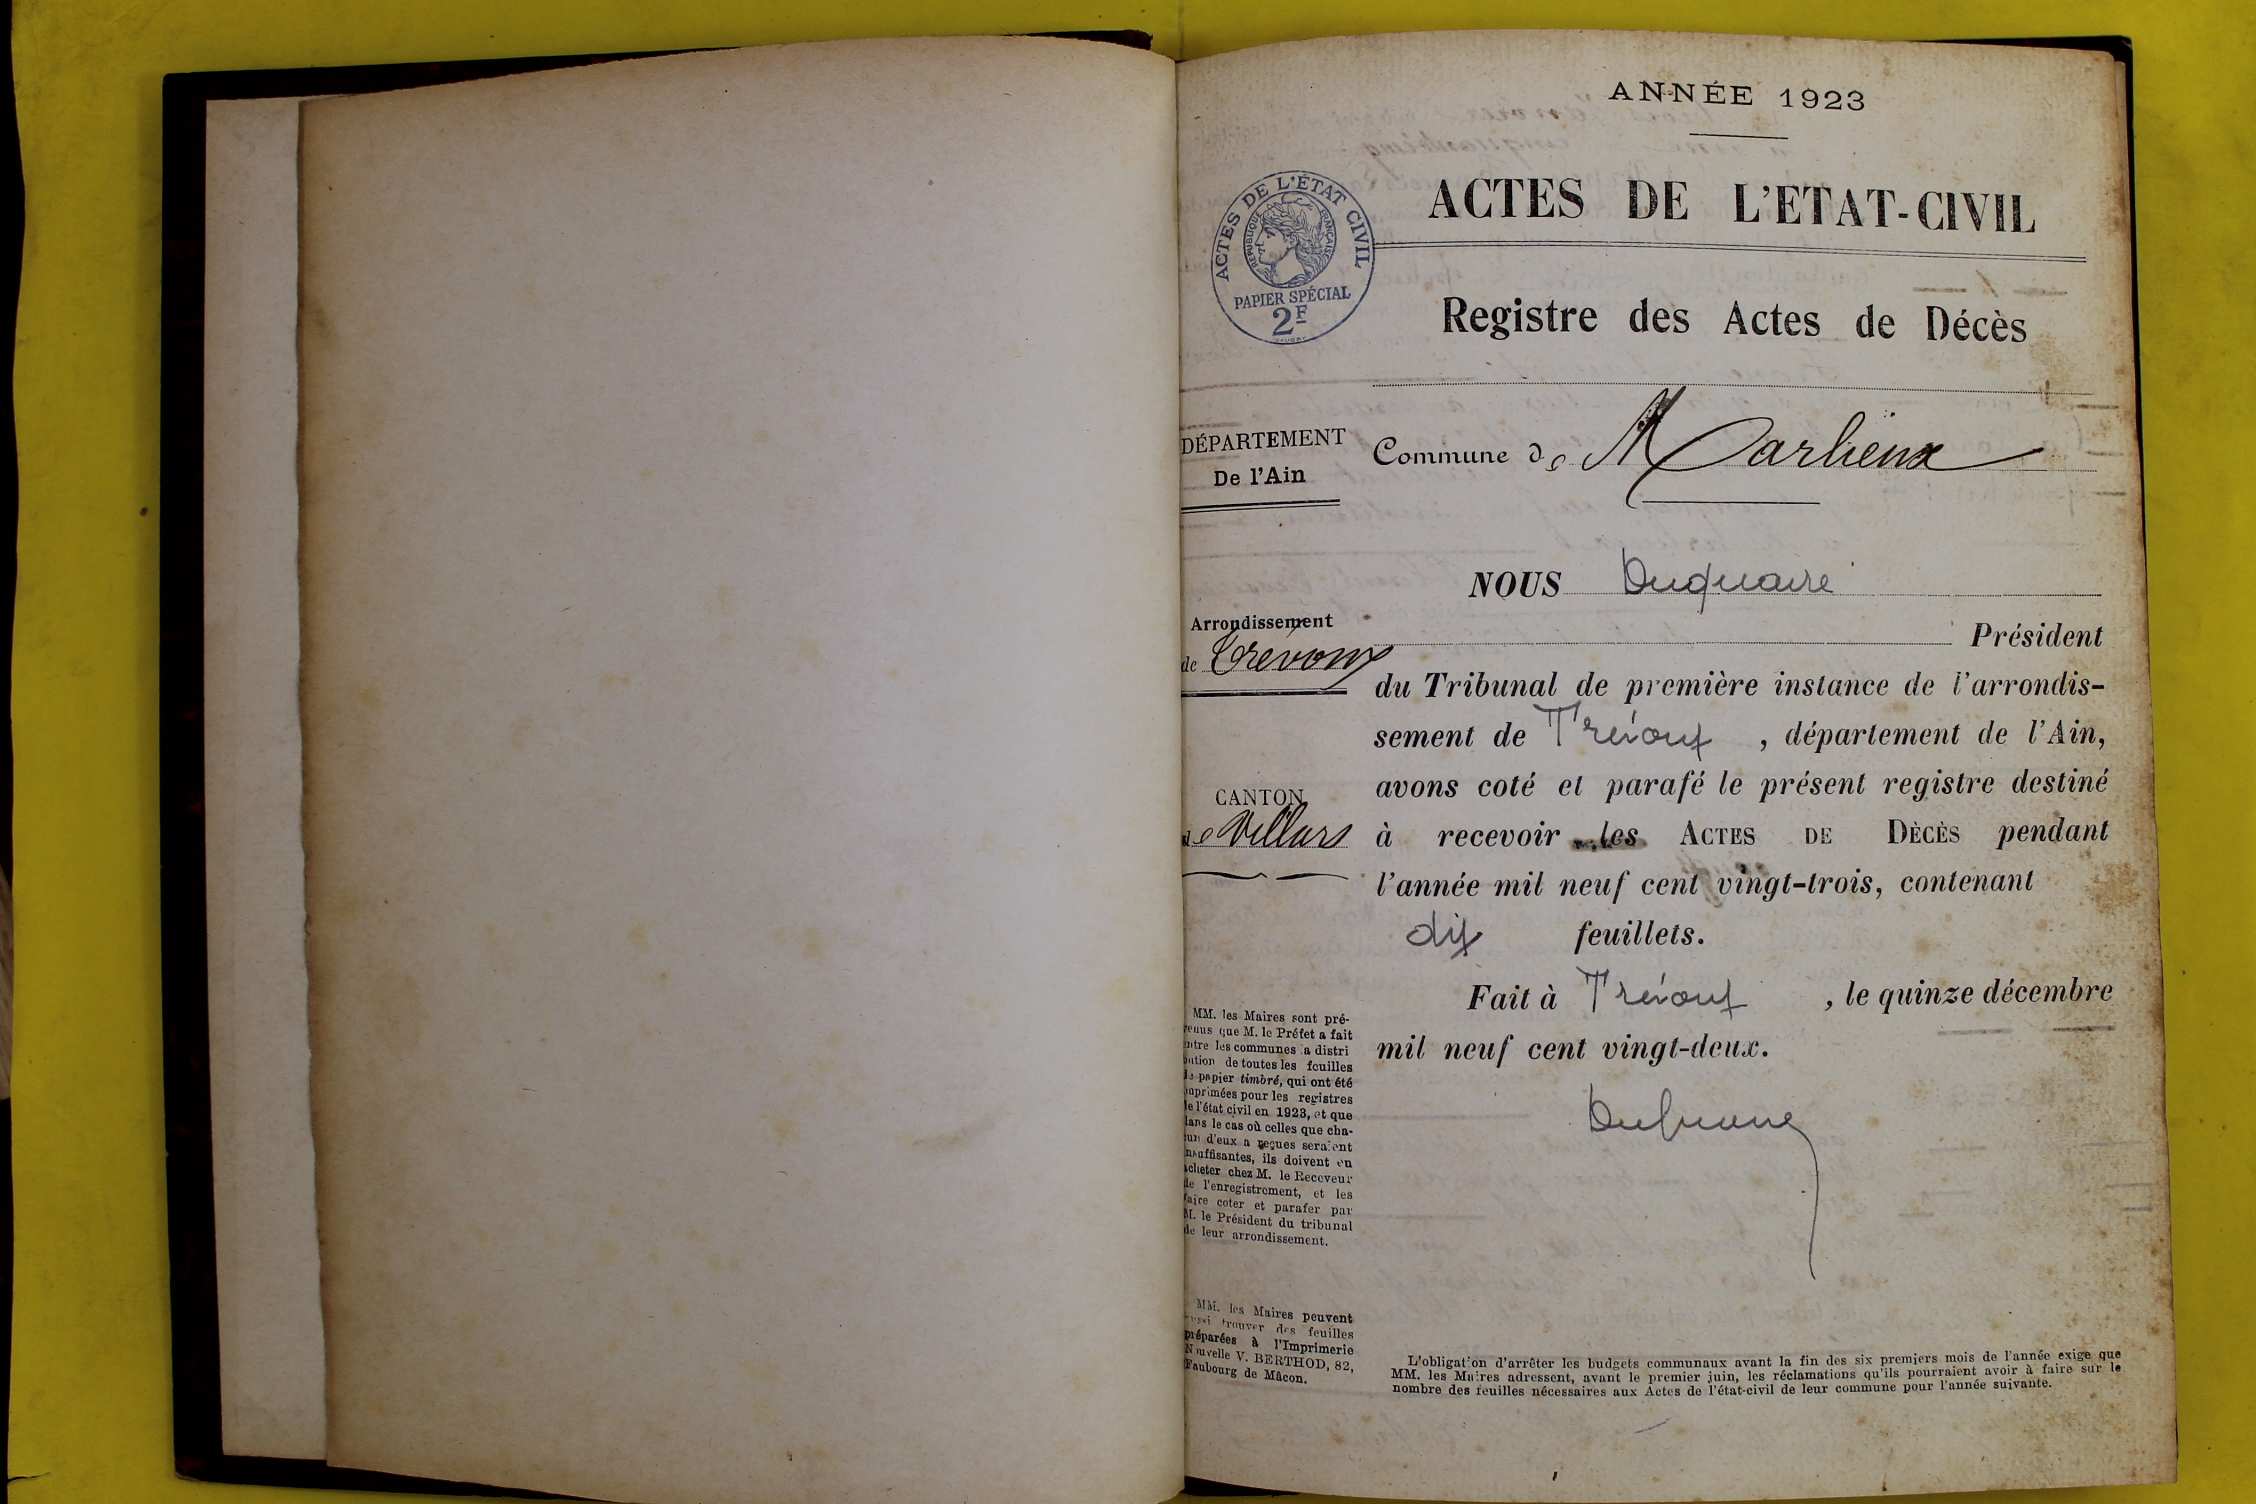 ANNÉE 1923
ACTES DE L'ÉTAT CIVIL
RÉPUBLIQUE FRANÇAISE
PAPIER SPÉCIAL
2F
ACTES DE L'ETAT-CIVIL
Registre des Actes de Décès
DÉPARTEMENT
De l'Ain
Commune de Marlieux
NOUS Duquaire
Arrondissement
de Trévoux
Président
du Tribunal de première instance de l'arrondis-
sement de Trévoux , département de l'Ain,
avons coté et parafé le présent registre destiné
CANTON
de Villars
à recevoir les ACTES DE DÈCÈS pendant
l'année mil neuf cent vingt-trois, contenant
dix feuillets.
Fait à Trévoux , le quinze décembre
mil neuf cent vingt-deux.
Duquaire
MM. les Maires sont pré-
venus que M. le Préfet a fait
entre les communes la distri
bution de toutes les feuilles
de papier timbré, qui ont été
imprimées pour les registres
de l'état civil en 1923, et que
dans le cas où celles que cha-
cun d'eux a reçues seraient
insuffisantes, ils doivent en
acheter chez M. le Receveur
de l'enregistrement, et les
faire coter et parafer par
M. le Président du tribunal
de leur arrondissement.
MM. les Maires peuvent
aussi trouver des feuilles
préparées à l'Imprimerie
Nouvelle V. BERTHOD, 82,
Faubourg de Mâcon.
L'obligation d'arrêter les budgets communaux avant la fin des six premiers mois de l'année exige que
MM. les Maires adressent, avant le premier juin, les réclamations qu'ils pourraient avoir à faire sur le
nombre des feuilles nécessaires aux Actes de l'état-civil de leur commune pour l'année suivante.